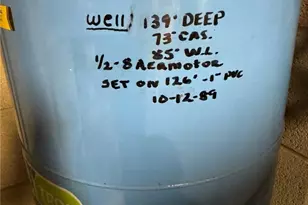 well/ 139' DEEP
73' CAS.
85' W.L.
1/2-8 Aermotor
SET ON 126'-1" PVC
10-12-89